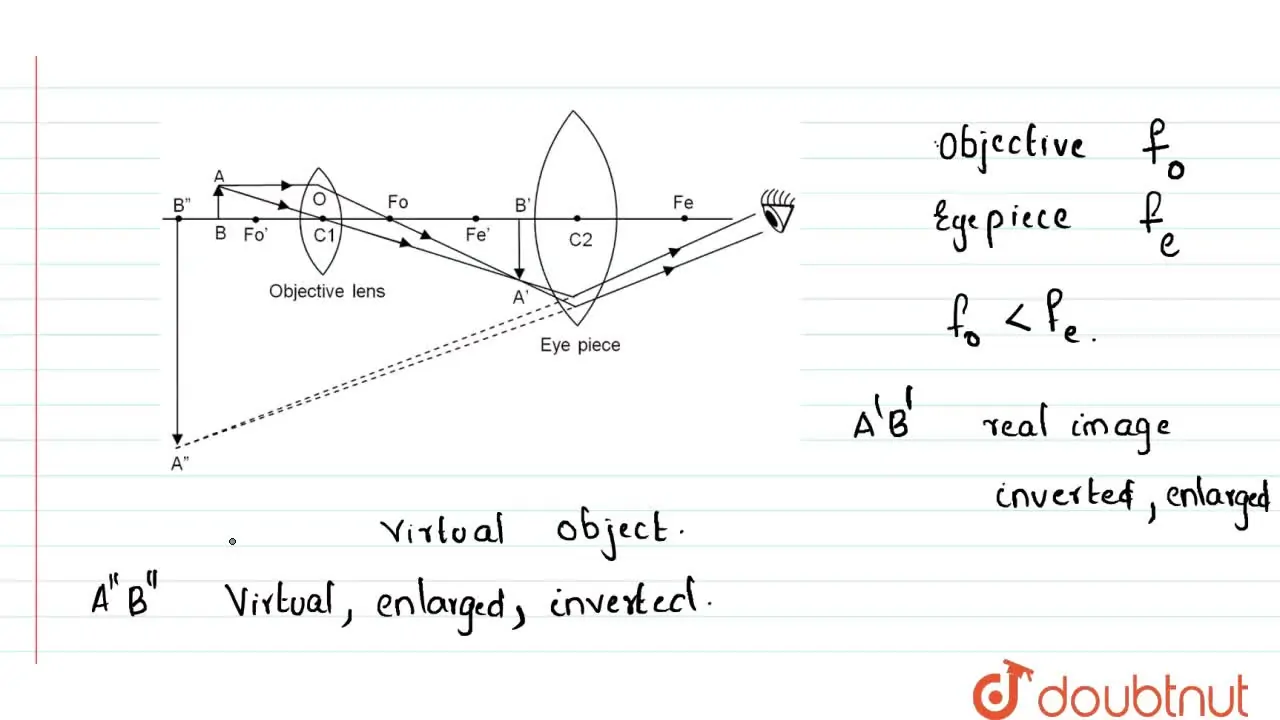 A
B” O Fo B’ Fe
B Fo’ C1 Fe’ C2
Objective lens A’
Eye piece
A”
Objective fo
Eyepiece fe
fo < fe.
A'B' real image
inverted, enlarged
Virtual object.
A"B" Virtual, enlarged, inverted.
doubtnut